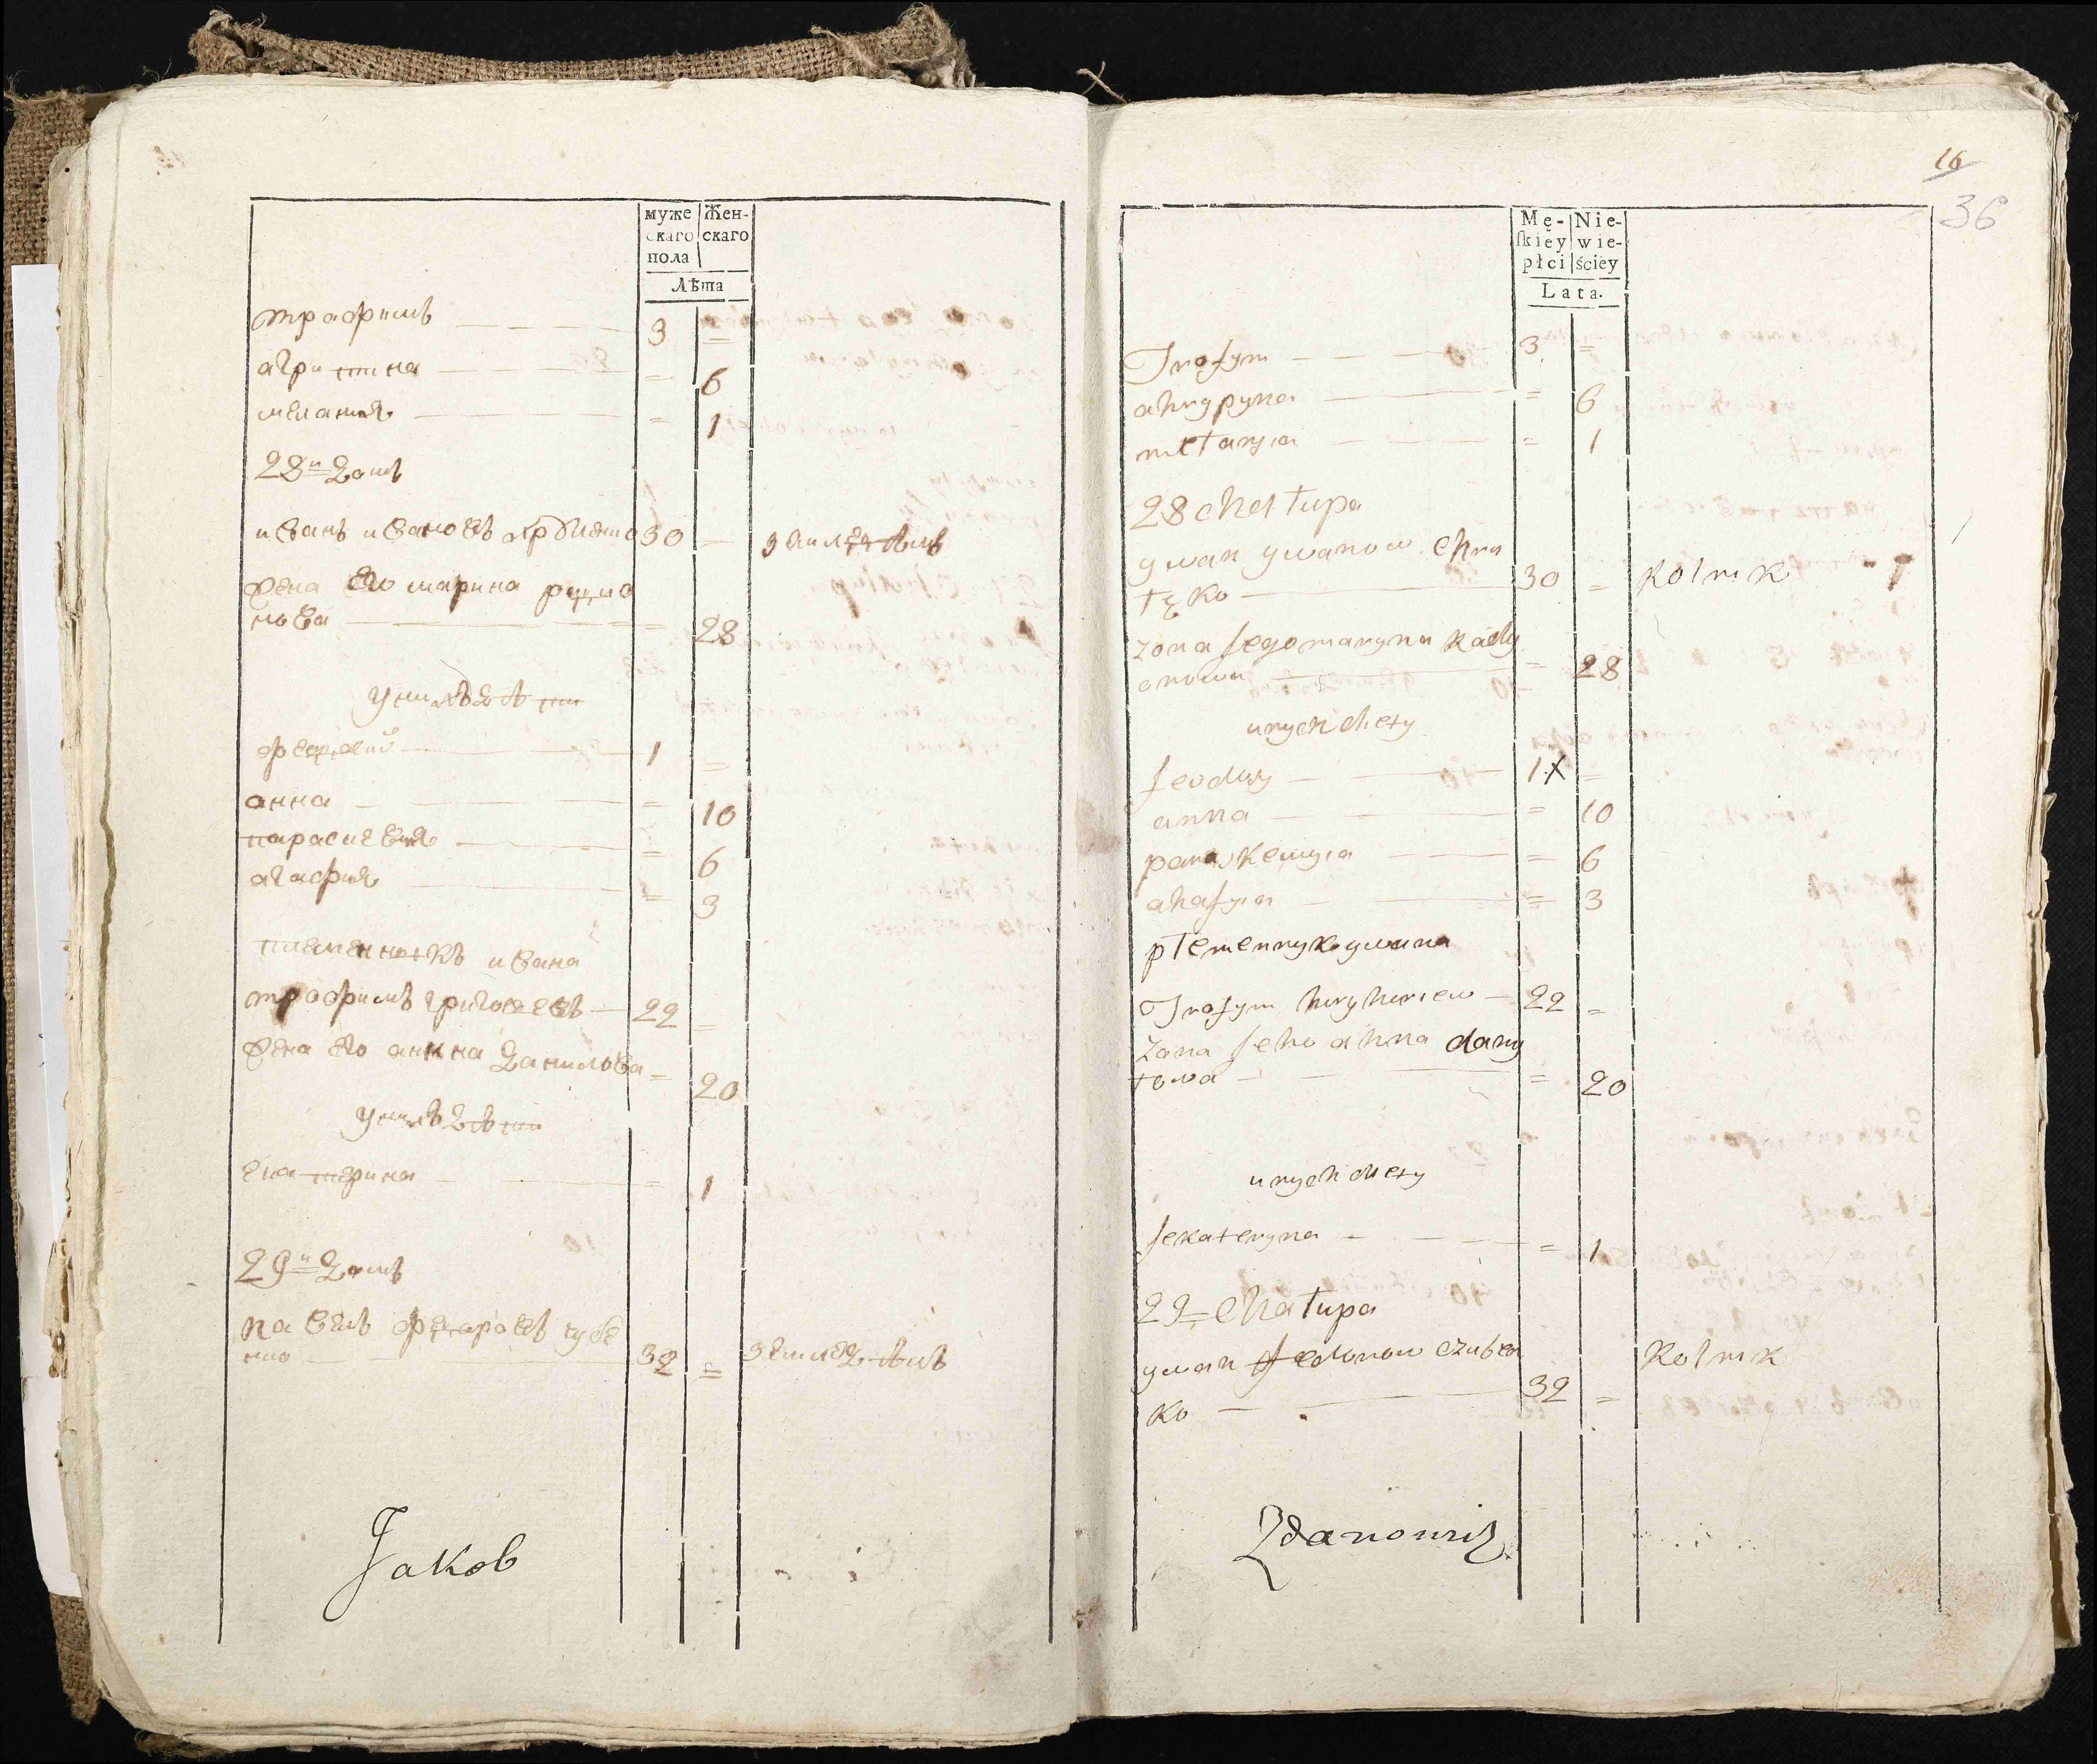 муже
скаго
пола
Жен-
скаго
Лѣта
трофимъ 3 =
агрипина = 6
мелания = 1
28й домъ
иванъ ивановъ 30 = земледѣлъ
жена его марина родио
нова = 28
у нихъ дѣти
феодосий 1 =
анна = 10
параскевия = 6
агафия = 3
племенникъ ивана
трофимъ григоревъ 22 =
жена его анна данилова = 20
у нихъ дѣти
екатерина = 1
29й домъ
павелъ федоровъ чубе
нко 32 = земледѣлъ
Jakob
16
36
Mę-
skiey
płci
Nie-
wie-
ściey
Lata.
Trofym 3 =
ahrypyna = 6
mełanyia = 1
28 chałupa
ywan ywanow chra
łęko 30 = Rolnik
zona jego maryna Rady
onowa = 28
u nych diety
feodosy 1 x =
anna = 10
paraskewyia = 6
ahafyia = 3
płemennyk ywana
Trofym hryhoriew 22 =
zona jeho anna dany
łowa = 20
u nych diety
jekateryna = 1
29 chałupa
ywan fedorow czuben
ko 32 = Rolnik
Zdanowicz